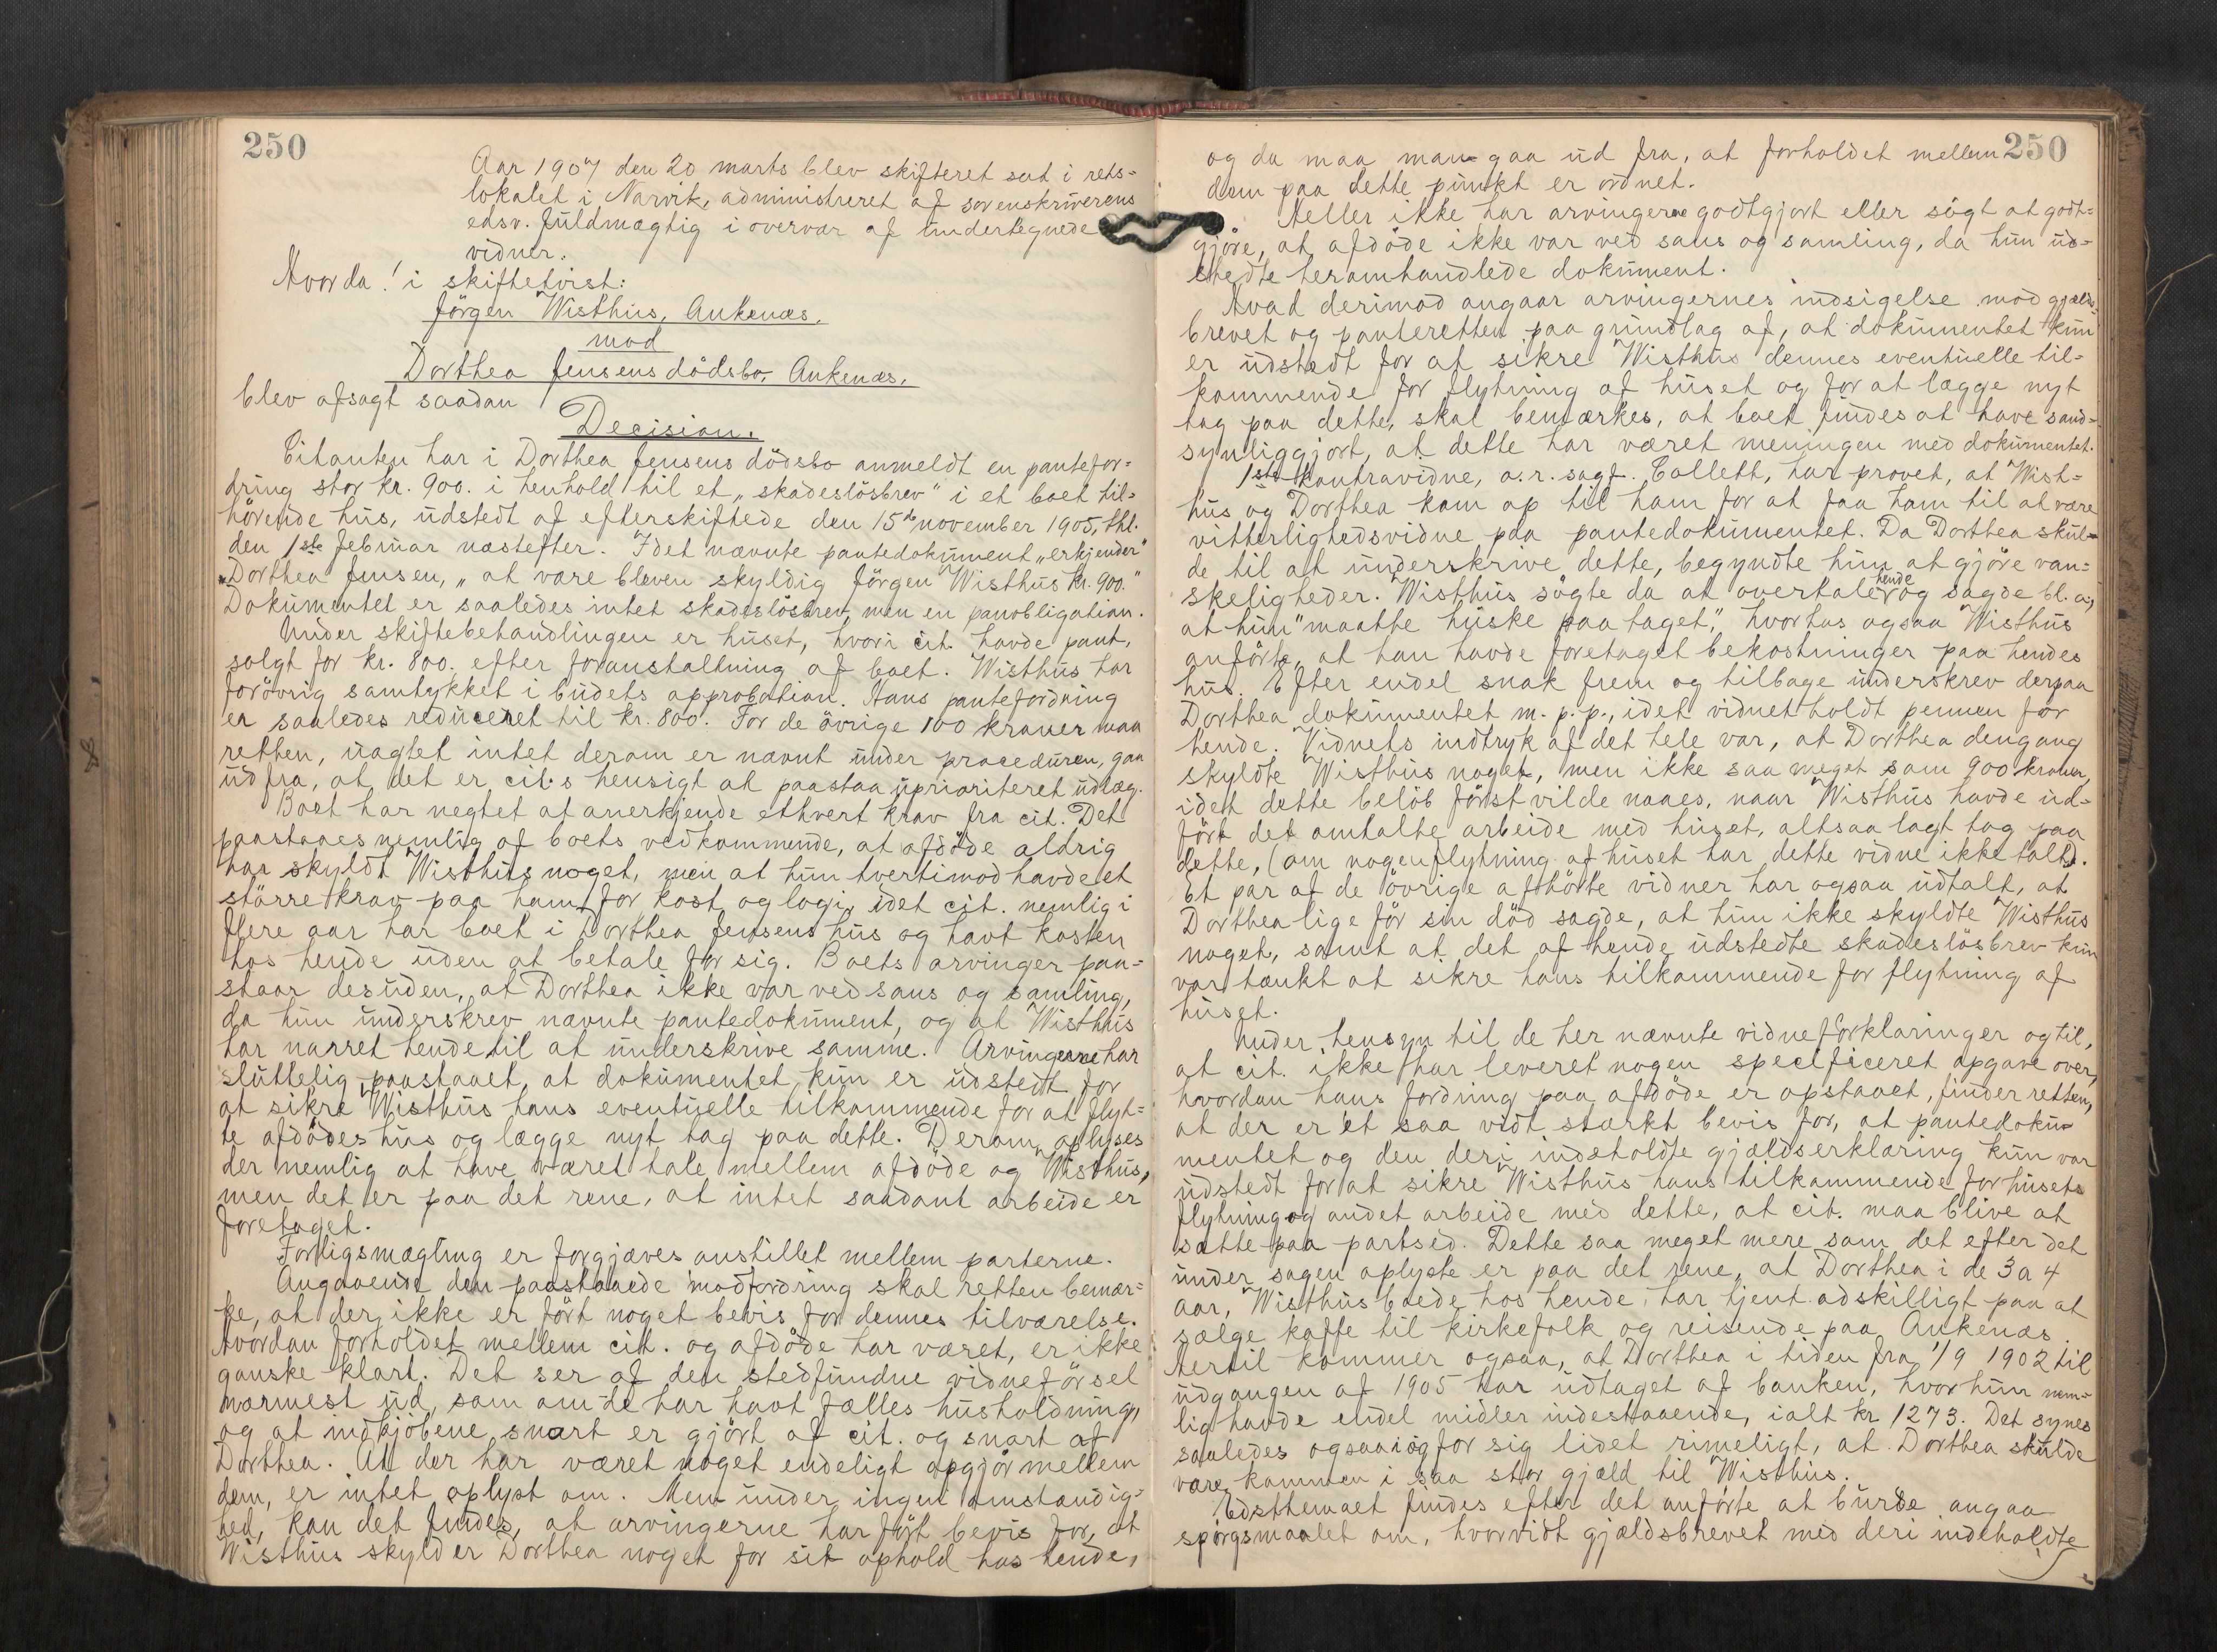 250
Aar 1907 den 20 marts blev skifteret sat i rets-
lokalet i Narvik, administreret af sorenskriverens
edsv. fuldmægtig i overvær af undertegnede
vidner.
Hvorda! i skiftetvist:
Jörgen Wisthus, Ankenæs,
mod
Dorthea Jensens dödsbo, Ankenæs,
blev afsagt saadan
Decision.
Citanten har i Dorthea Jensens dödsbo anmeldt en pantefor-
dring stor kr. 900. i henhold til et „skadeslösbrev" i et boet til-
hörende hus, udstedt af efterskiftede den 15de november 1905, thl.
den 1ste februar næstefter. I det nævnte pantedokument „erkjender"
Dorthea Jensen, „at være bleven skyldig Jörgen Wisthus kr. 900."
Dokumentet er saaledes intet skadeslösbrev, men en panobligation.
Under skiftebehandlingen er huset, hvori cit. havde pant,
solgt for kr. 800. efter foranstaltning af boet. Wisthus har
forövrig samtykket i budets approbation. Hans pantefordring
er saaledes reduceret til kr. 800. For de övrige 100 kroner maa
retten, uagtet intet derom er nævnt under proceduren, gaa
ud fra, at det er cit.s hensigt at paastaa uprioriteret udlæg.
Boet har negtet at anerkjende ethvert krav fra cit. Det
paastaaes nemlig af boets vedkommende, at afdöde aldrig
har skyldt Wisthus noget, men at hun tvertimod havde et
större krav paa ham for kost og logi, idet cit. nemlig i
flere aar har boet i Dorthea Jensens hus og havt kosten
hos hende uden at betale for sig. Boets arvinger paa-
staar desuden, at Dorthea ikke var ved sans og samling,
da hun underskrev nævnte pantedokument, og at Wisthus
har narret hende til at underskrive samme. Arvingerne har
sluttelig paastaaet, at dokumentet kun er udstedt for
at sikre Wisthus hans eventuelle tilkommende for at flyt-
te afdödes hus og lægge nyt tag paa dette. Derom oplyses
der nemlig at have været tale mellem afdöde og Wisthus,
men det er paa det rene, at intet saadant arbeide er
foretaget.
Forligsmægling er forgjæves anstillet mellem parterne.
Angaaende den paastaaede modfordring skal retten bemær-
ke, at der ikke er fört noget bevis for dennes tilværelse.
Hvordan forholdet mellem cit. og afdöde har været, er ikke
ganske klart. Det ser af den stedfundne vidneförsel
nærmest ud, som om de har havt fælles husholdning,
og at indkjöbene snart er gjört af cit. og snart af
Dorthea. At der har været noget endeligt opgjör mellem
dem, er intet oplyst om. Men under ingen omstændig-
hed, kan det findes, at arvingerne har fört bevis for, at
Wisthus skylder Dorthea noget for sit ophold hos hende,
250
og da maa man gaa ud fra, at forholdet mellem
dem paa dette punkt er ordnet.
Heller ikke har arvingerne godtgjort eller sögt at godt-
gjöre, at afdöde ikke var ved sans og samling, da hun ud-
stedte heromhandlede dokument.
Hvad derimod angaar arvingernes indsigelse mod gjælds-
brevet og panteretten paa grundlag af, at dokumentet kun
er udstedt for at sikre Wisthus dennes eventuelle til-
kommende for flytning af huset og for at lægge nyt
tag paa dette, skal bemærkes, at boet findes at have sand-
synliggjort, at dette har været meningen med dokumentet.
1ste kontravidne, o.r. sagf. Collett, har provet, at Wist-
hus og Dorthea kom op til ham for at faa ham til at være
vitterlighedsvidne paa pantedokumentet. Da Dorthea skul-
de til at underskrive dette, begyndte hun at gjöre van-
skeligheder. Wisthus sögte da at overtale hende og sagde bl. a.,
at hun "maatte huske paa taget", hvorhos ogsaa Wisthus
anförte, at han havde foretaget bekostninger paa hendes
hus. Efter endel snak frem og tilbage underskrev derpaa
Dorthea dokumentet m. p. p., idet vidnet holdt pennen for
hende. Vidnets indtryk af det hele var, at Dorthea dengang
skyldte Wisthus noget, men ikke saa meget som 900 kroner,
idet dette belöb först vilde naaes, naar Wisthus havde ud-
fört det omtalte arbeide med huset, altsaa lagt tag paa
dette, (om nogen flytning af huset har dette vidne ikke talt).
Et par af de övrige afhörte vidner har ogsaa udtalt, at
Dorthea lige för sin död sagde, at hun ikke skyldte Wisthus
noget, samt at det af hende udstedte skadeslösbrev kun
var tænkt at sikre hans tilkommende for flytning af
huset.
Under hensyn til de her nævnte vidneforklaringer og til,
at cit. ikke har leveret nogen specificeret opgave over,
hvordan hans fordring paa afdöde er opstaaet, finder retten,
at der er et saa vidt stærkt bevis for, at pantedoku-
mentet og den deri indeholdte gjældserklæring kun var
udstedt for at sikre Wisthus hans tilkommende for husets
flytning og andet arbeide med dette, at cit. maa blive at
sætte paa partsed. Dette saa meget mere som det efter det
under sagen oplyste er paa det rene, at Dorthea i de 3 a 4
aar, Wisthus boede hos hende, har tjent adskilligt paa at
sælge kaffe til kirkefolk og reisende paa Ankenæs.
Hertil kommer ogsaa, at Dorthea i tiden fra 1/9 1902 til
udgangen af 1905 har udtaget af banken, hvor hun nem-
lig havde endel midler indestaaende, ialt kr 1273. Det synes
saaledes ogsaa i og for sig lidet rimeligt, at Dorthea skulde
være kommen i saa stor gjæld til Wisthus.
Edsthemaet findes efter det anförte at burde angaa
spörgsmaalet om, hvorvidt gjældsbrevet med deri indeholdte